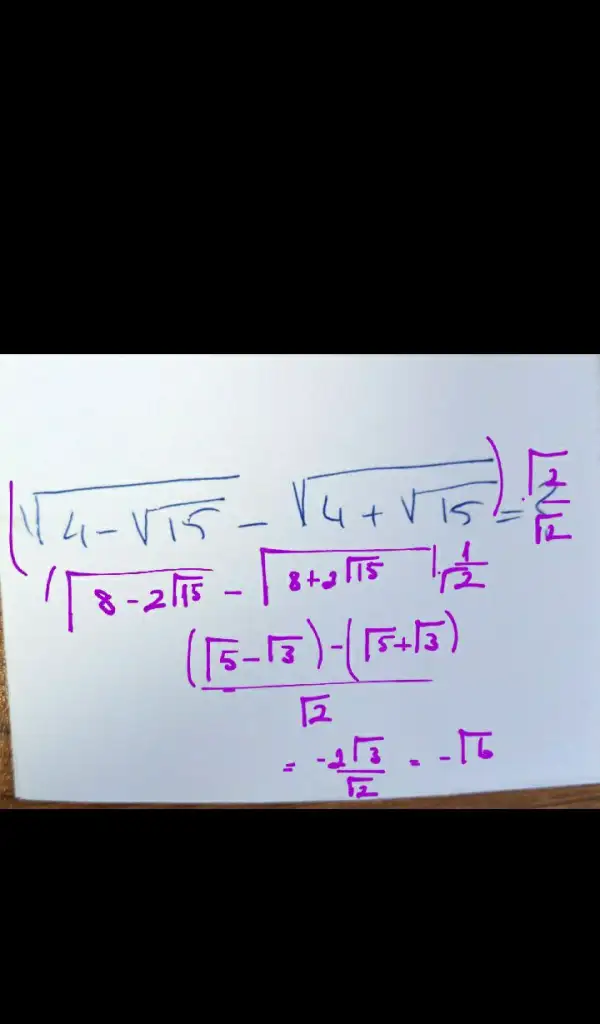 (√(4-√15) - √(4+√15)) · √2/√2 =
(√(8-2√15) - √(8+2√15)) · 1/√2
((√5-√3)-(√5+√3))/√2
= -2√3/√2 = -√6